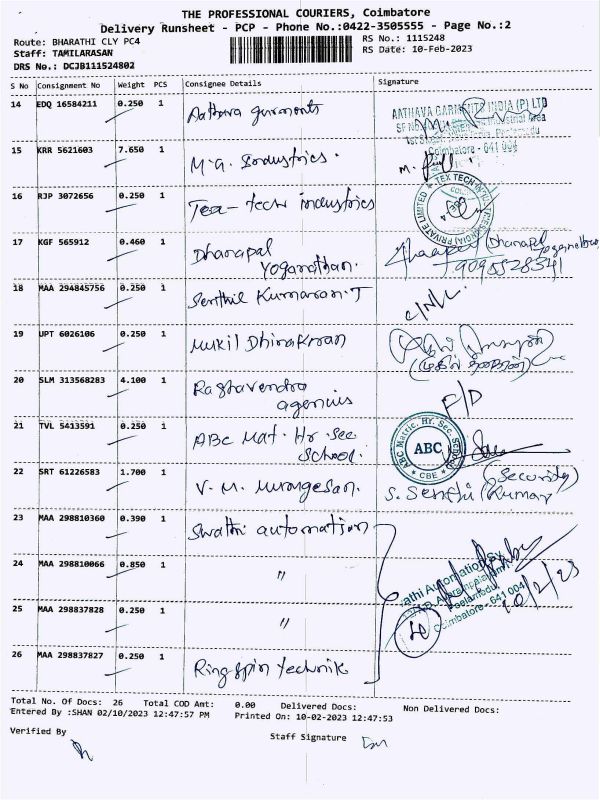 THE PROFESSIONAL COURIERS, Coimbatore
Delivery Runsheet - PCP - Phone No.:0422-3505555 - Page No.:2
Route: BHARATHI CLY PC4 RS No.: 1115248
Staff: TAMILARASAN RS Date: 10-Feb-2023
DRS No.: DCJB111524802
S No Consignment No Weight PCS Consignee Details Signature
14 EDQ 16584211 0.250 1 Aathava garments
AATHAVA GARMENTS INDIA (P) LTD
Coimbatore - 641 004
15 KRR 5621603 7.650 1 M.G. Industries.
16 RJP 3072656 0.250 1 Tex-tech industries
17 KGF 565912 0.460 1 Dhanapal
Yoganathan.
9095528341
18 MAA 294845756 0.250 1 Senthil Kumaran.T
19 UPT 6026106 0.250 1 Mukil Dhinakaran
20 SLM 313568283 4.100 1 Raghavendra
agencies
F/D
21 TVL 5413591 0.250 1 ABC Mat. Hr. Sec
School.
ABC Matric. Hr. Sec. School
ABC
CBE
22 SRT 61226583 1.700 1 V. M. Murugesan.
(Security)
S. Senthil Kumar
23 MAA 298810360 0.390 1 Swathi automation
24 MAA 298810066 0.850 1 "
Peelamedu
Coimbatore - 641 004
10/2/23
25 MAA 298837828 0.250 1 "
26 MAA 298837827 0.250 1 Ringspin technik
Total No. Of Docs: 26 Total COD Amt: 0.00 Delivered Docs: Non Delivered Docs:
Entered By :SHAN 02/10/2023 12:47:57 PM Printed On: 10-02-2023 12:47:53
Verified By Staff Signature